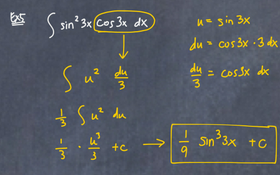 Ex5 ∫ sin² 3x cos 3x dx
u = sin 3x
du = cos 3x · 3 dx
∫ u² du/3
du/3 = cos 3x dx
1/3 ∫ u² du
1/3 · u³/3 + c → 1/9 sin³ 3x + c